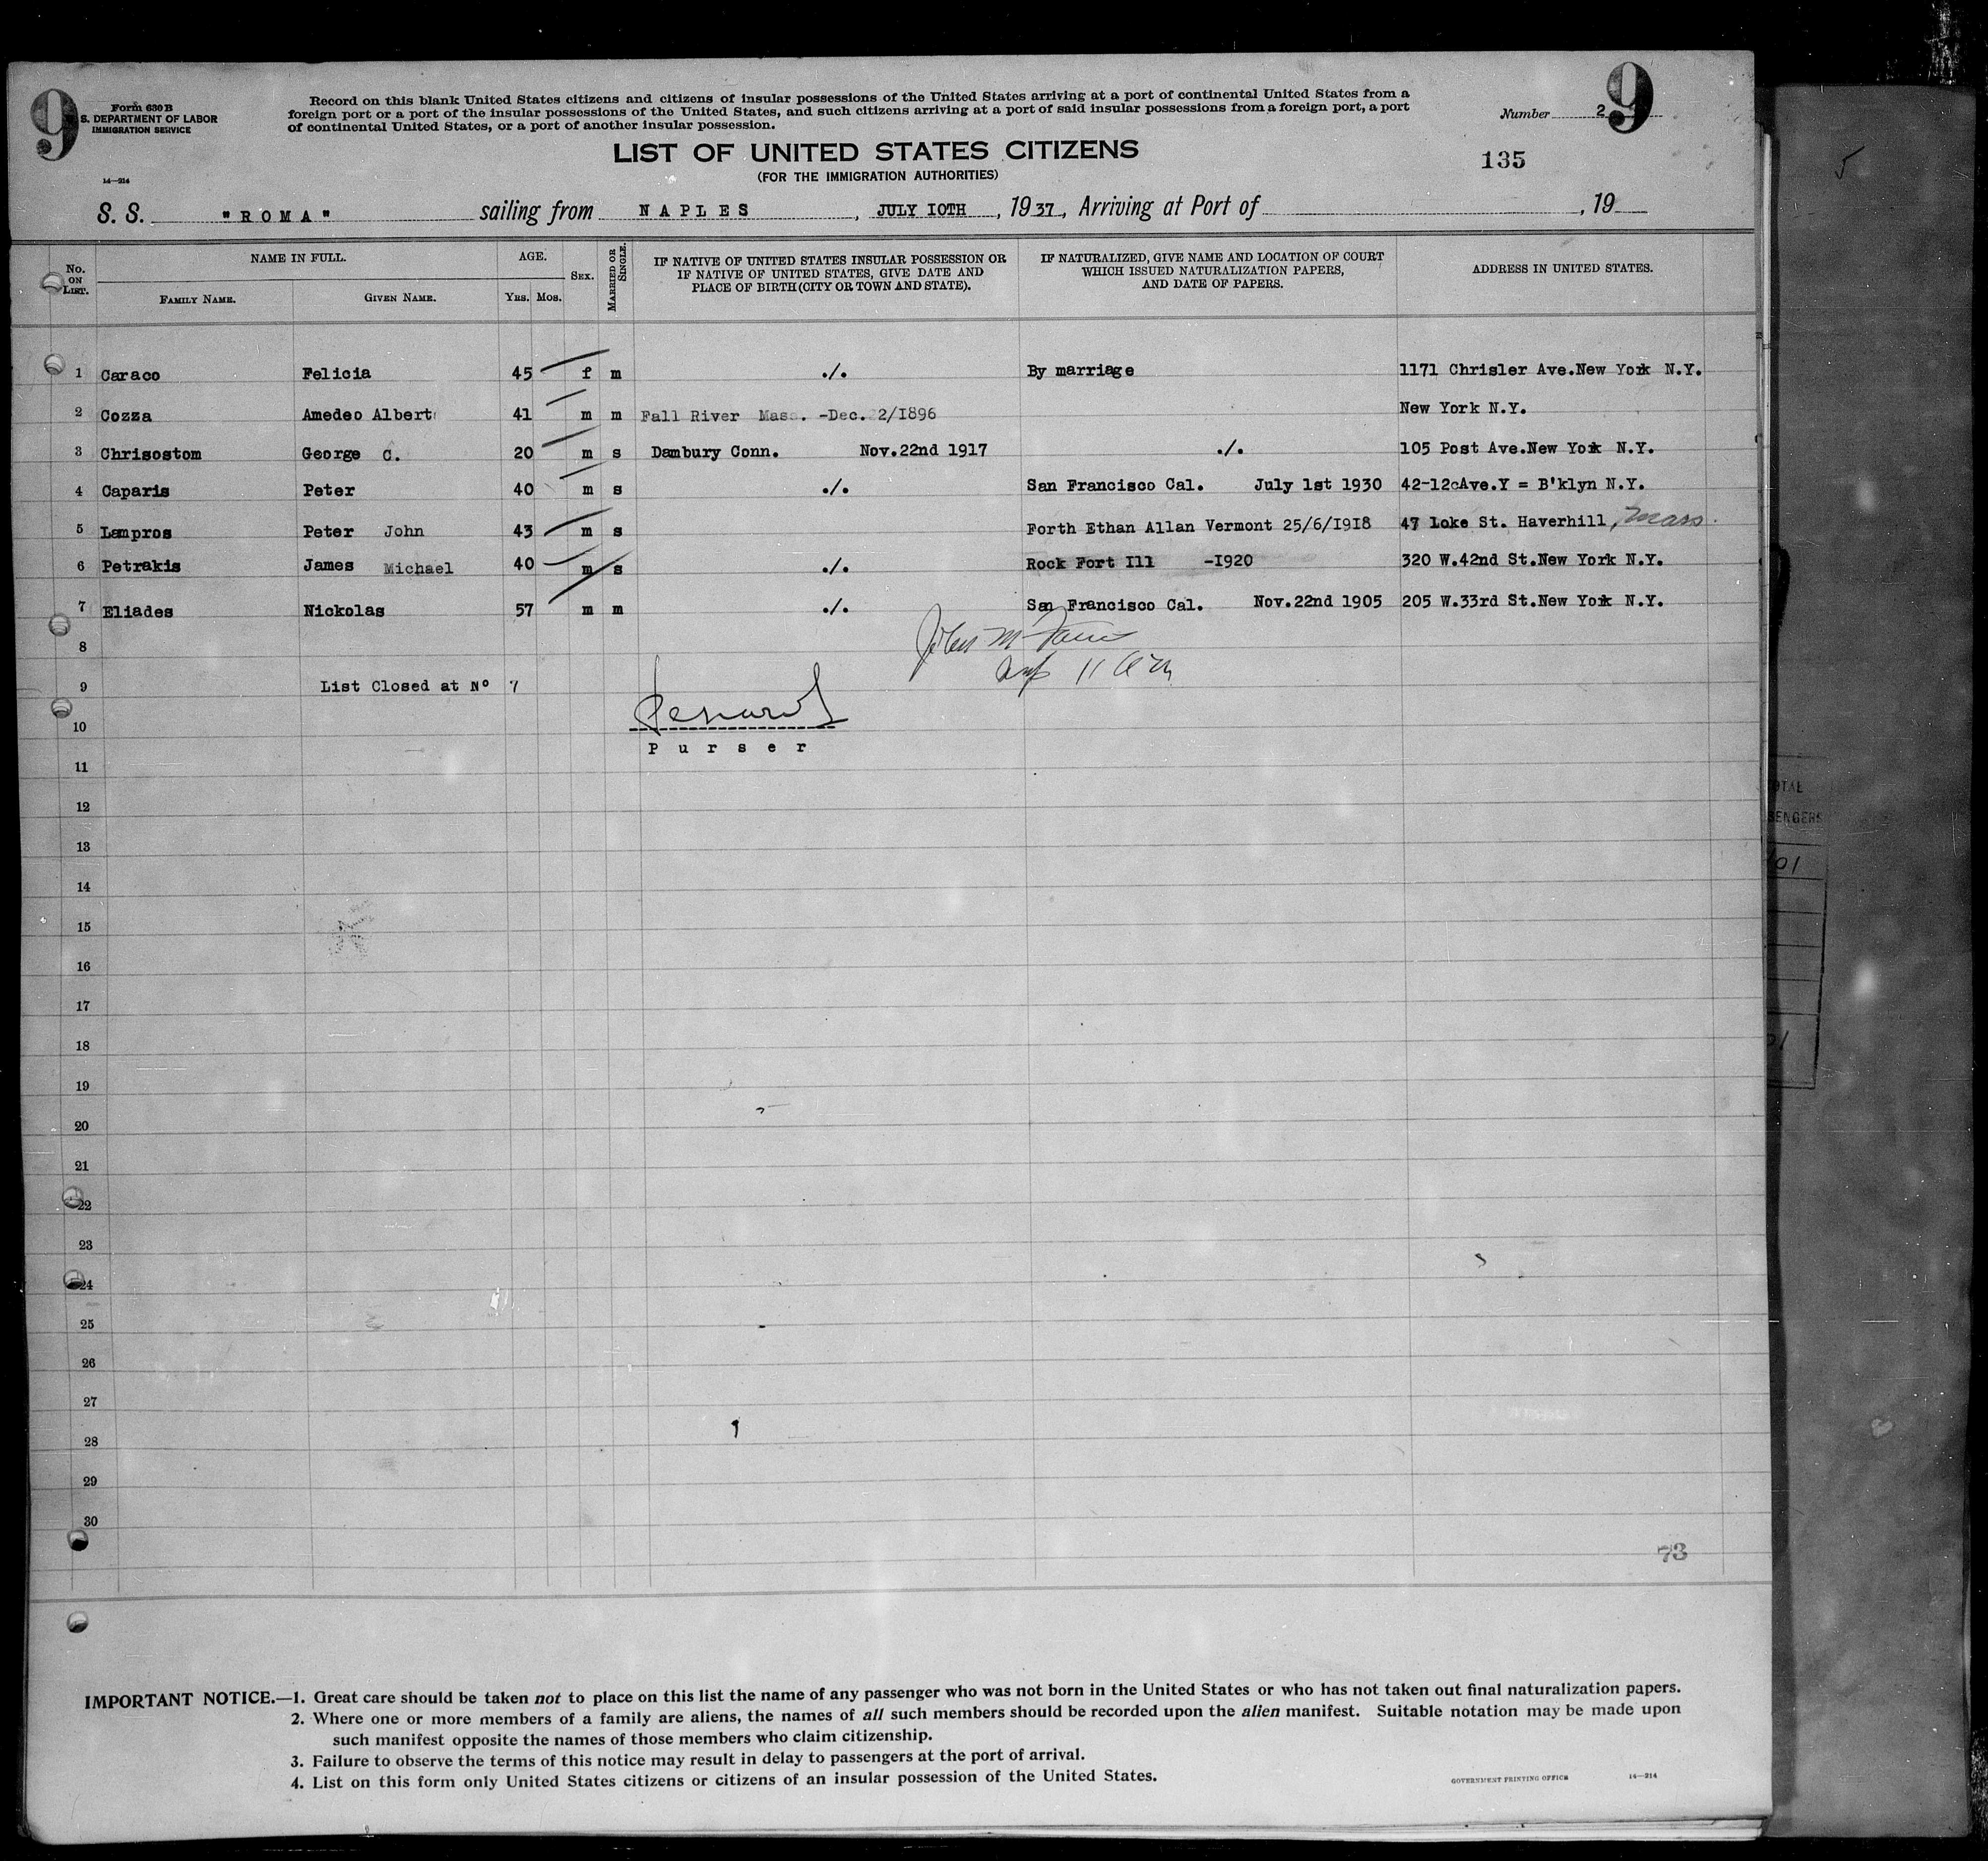 9
Form 630 B
S. DEPARTMENT OF LABOR
IMMIGRATION SERVICE
14—214
Record on this blank United States citizens and citizens of insular possessions of the United States arriving at a port of continental United States from a
foreign port or a port of the insular possessions of the United States, and such citizens arriving at a port of said insular possessions from a foreign port, a port
of continental United States, or a port of another insular possession.
Number 2 9
LIST OF UNITED STATES CITIZENS
(FOR THE IMMIGRATION AUTHORITIES)
135
S. S. "ROMA" sailing from NAPLES, JULY IOTH, 1937, Arriving at Port of , 19
No. ON LIST.
NAME IN FULL.
FAMILY NAME. GIVEN NAME.
AGE.
YRS. MOS.
SEX.
MARRIED OR SINGLE.
IF NATIVE OF UNITED STATES INSULAR POSSESSION OR
IF NATIVE OF UNITED STATES, GIVE DATE AND
PLACE OF BIRTH (CITY OR TOWN AND STATE).
IF NATURALIZED, GIVE NAME AND LOCATION OF COURT
WHICH ISSUED NATURALIZATION PAPERS,
AND DATE OF PAPERS.
ADDRESS IN UNITED STATES.
1 Caraco Felicia 45 f m ./. By marriage 1171 Chrisler Ave.New York N.Y.
2 Cozza Amedeo Albert 41 m m Fall River Mass. -Dec. 2/I896 New York N.Y.
3 Chrisostom George C. 20 m s Dambury Conn. Nov.22nd 1917 ./. 105 Post Ave.New York N.Y.
4 Caparis Peter 40 m s ./. San Francisco Cal. July 1st 1930 42-12cAve.Y = B'klyn N.Y.
5 Lampros Peter John 43 m s Forth Ethan Allan Vermont 25/6/I9I8 47 Loke St. Haverhill, Mass.
6 Petrakis James Michael 40 m s ./. Rock Fort Ill -I920 320 W.42nd St.New York N.Y.
7 Eliades Nickolas 57 m m ./. San Francisco Cal. Nov.22nd 1905 205 W.33rd St.New York N.Y.
8
John M
9 List Closed at Nº 7
10
Purser
11
12
13
14
15
16
17
18
19
20
21
22
23
24
25
26
27
28
29
30
73
IMPORTANT NOTICE.—1. Great care should be taken not to place on this list the name of any passenger who was not born in the United States or who has not taken out final naturalization papers.
2. Where one or more members of a family are aliens, the names of all such members should be recorded upon the alien manifest. Suitable notation may be made upon
such manifest opposite the names of those members who claim citizenship.
3. Failure to observe the terms of this notice may result in delay to passengers at the port of arrival.
4. List on this form only United States citizens or citizens of an insular possession of the United States.
GOVERNMENT PRINTING OFFICE 14—214
5
OTAL
SENGERS
101
01